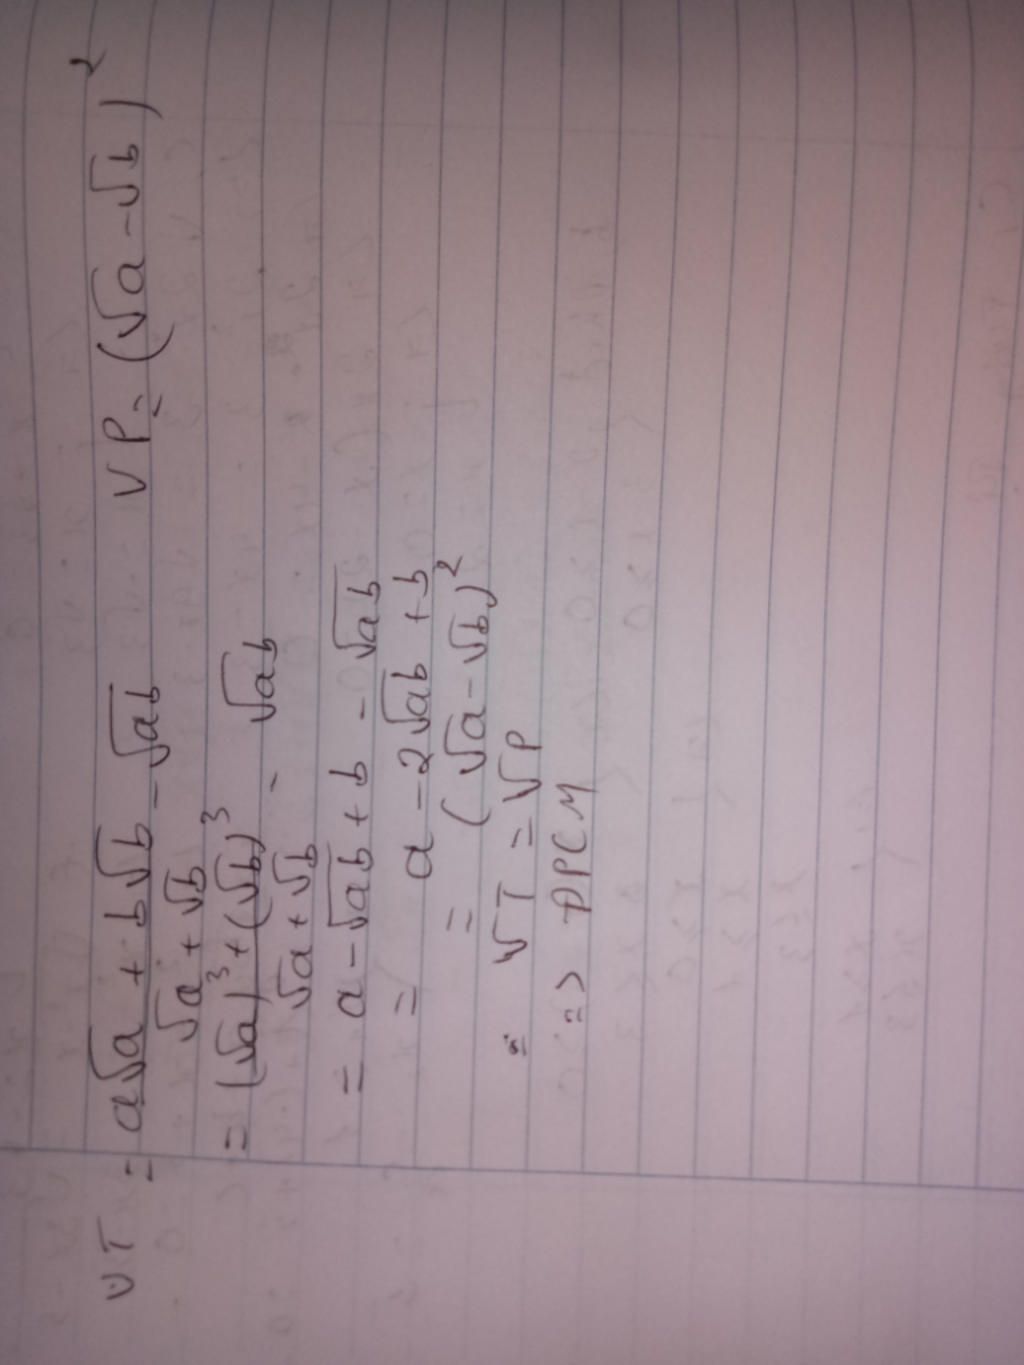 VT = (a√a + b√b)/(√a + √b) - √ab VP = (√a - √b)²
= ((√a)³ + (√b)³)/(√a + √b) - √ab
= a - √ab + b - √ab
= a - 2√ab + b
= (√a - √b)²
= VT = VP
=> ĐPCM